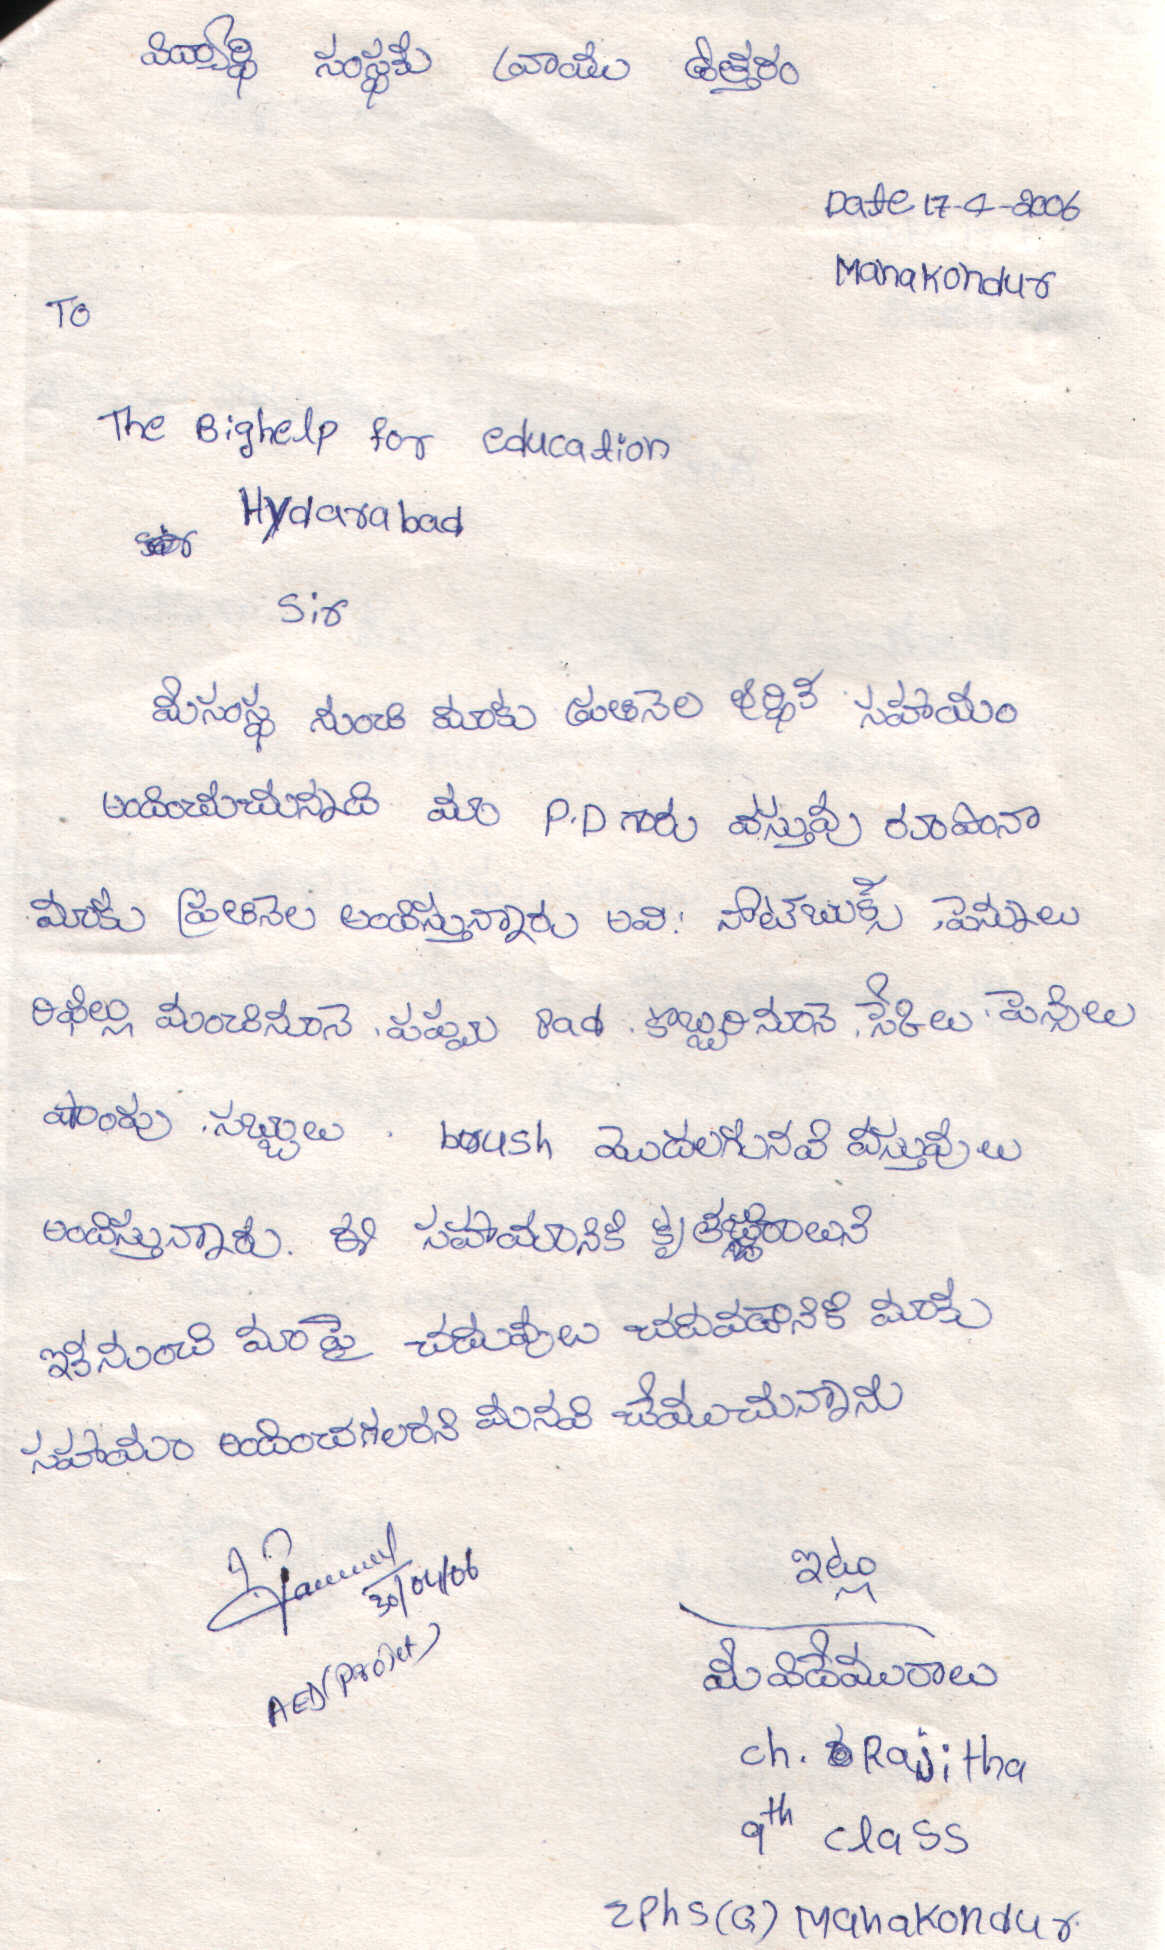 విద్యార్థి సంస్థకు వ్రాయు ఉత్తరం
Date 17-4-2006
Manakondur
To
The Bighelp for education
Hydarabad
Sir
మీసంస్థ నుంచి మాకు ప్రతినెల ఆర్థిక సహాయం
అందించుచున్నది మా P.D గారు వస్తువు రూపంనా
మాకు ప్రతినెల అందిస్తున్నారు అవి: నోట్‌బుక్స్, పెన్నులు
రిఫిల్లు మంచినూనె, పప్పు Pad. కొబ్బరినూనె, స్కేకిలు, పెన్సిలు
షాంపు, సబ్బులు. brush మొదలగునవి వస్తువులు
అందిస్తున్నారు. ఈ సహాయానికి కృతజ్ఞురాలుని
ఇకనుంచి మా పై చదువులు చదవడానికి మాకు
సహాయం అందించగలరని మనవి చేయుచున్నాను
30/04/06
AED(Project)
ఇట్లు
మీ విధేయురాలు
ch. Rajitha
9th class
ZPhS(G) Manakondur